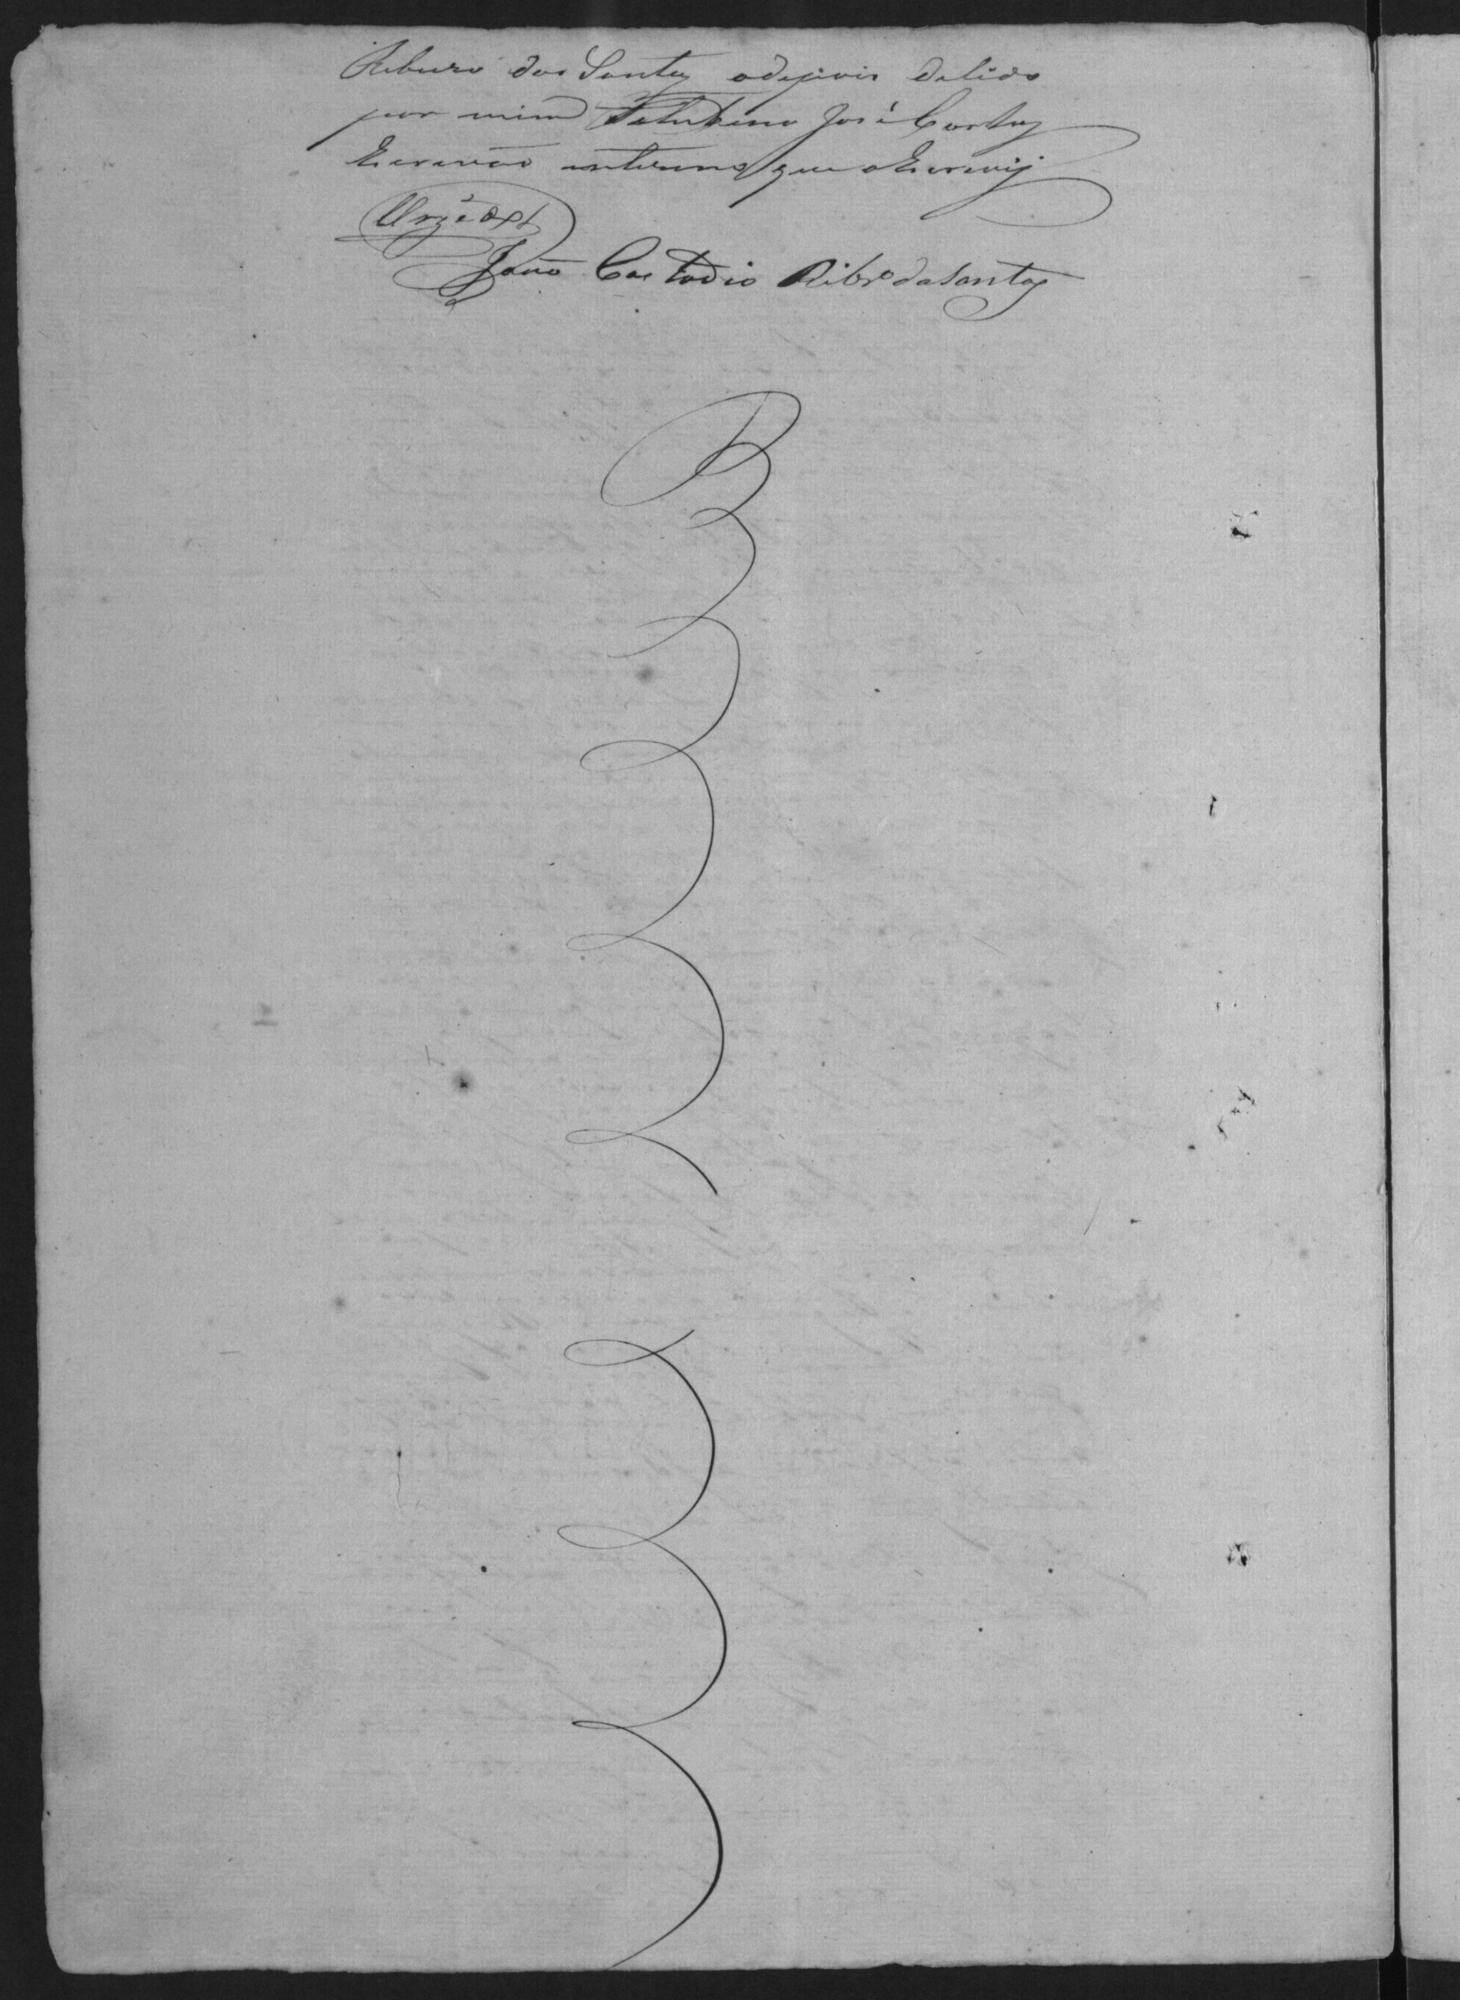 Ribeiro dos Santos e depois de lido
por mim José Cortez
Escrivão interino que o Escrevij
João Custodio Ribrº da Santos